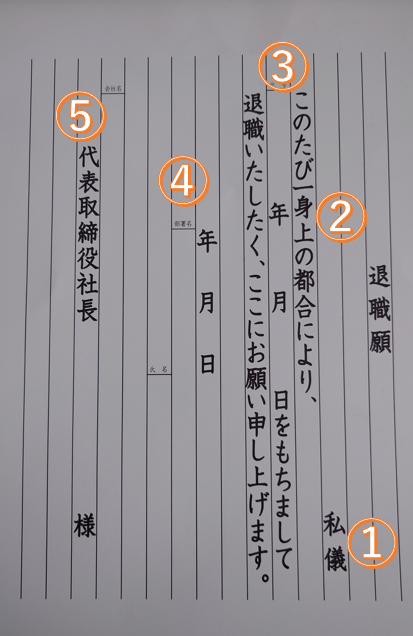 退職願
私儀
①
このたび一身上の都合により、
②
③
年　月　日をもちまして
退職いたしたく、ここにお願い申し上げます。
年　月　日
④
部署名
氏名
会社名
⑤
代表取締役社長　様